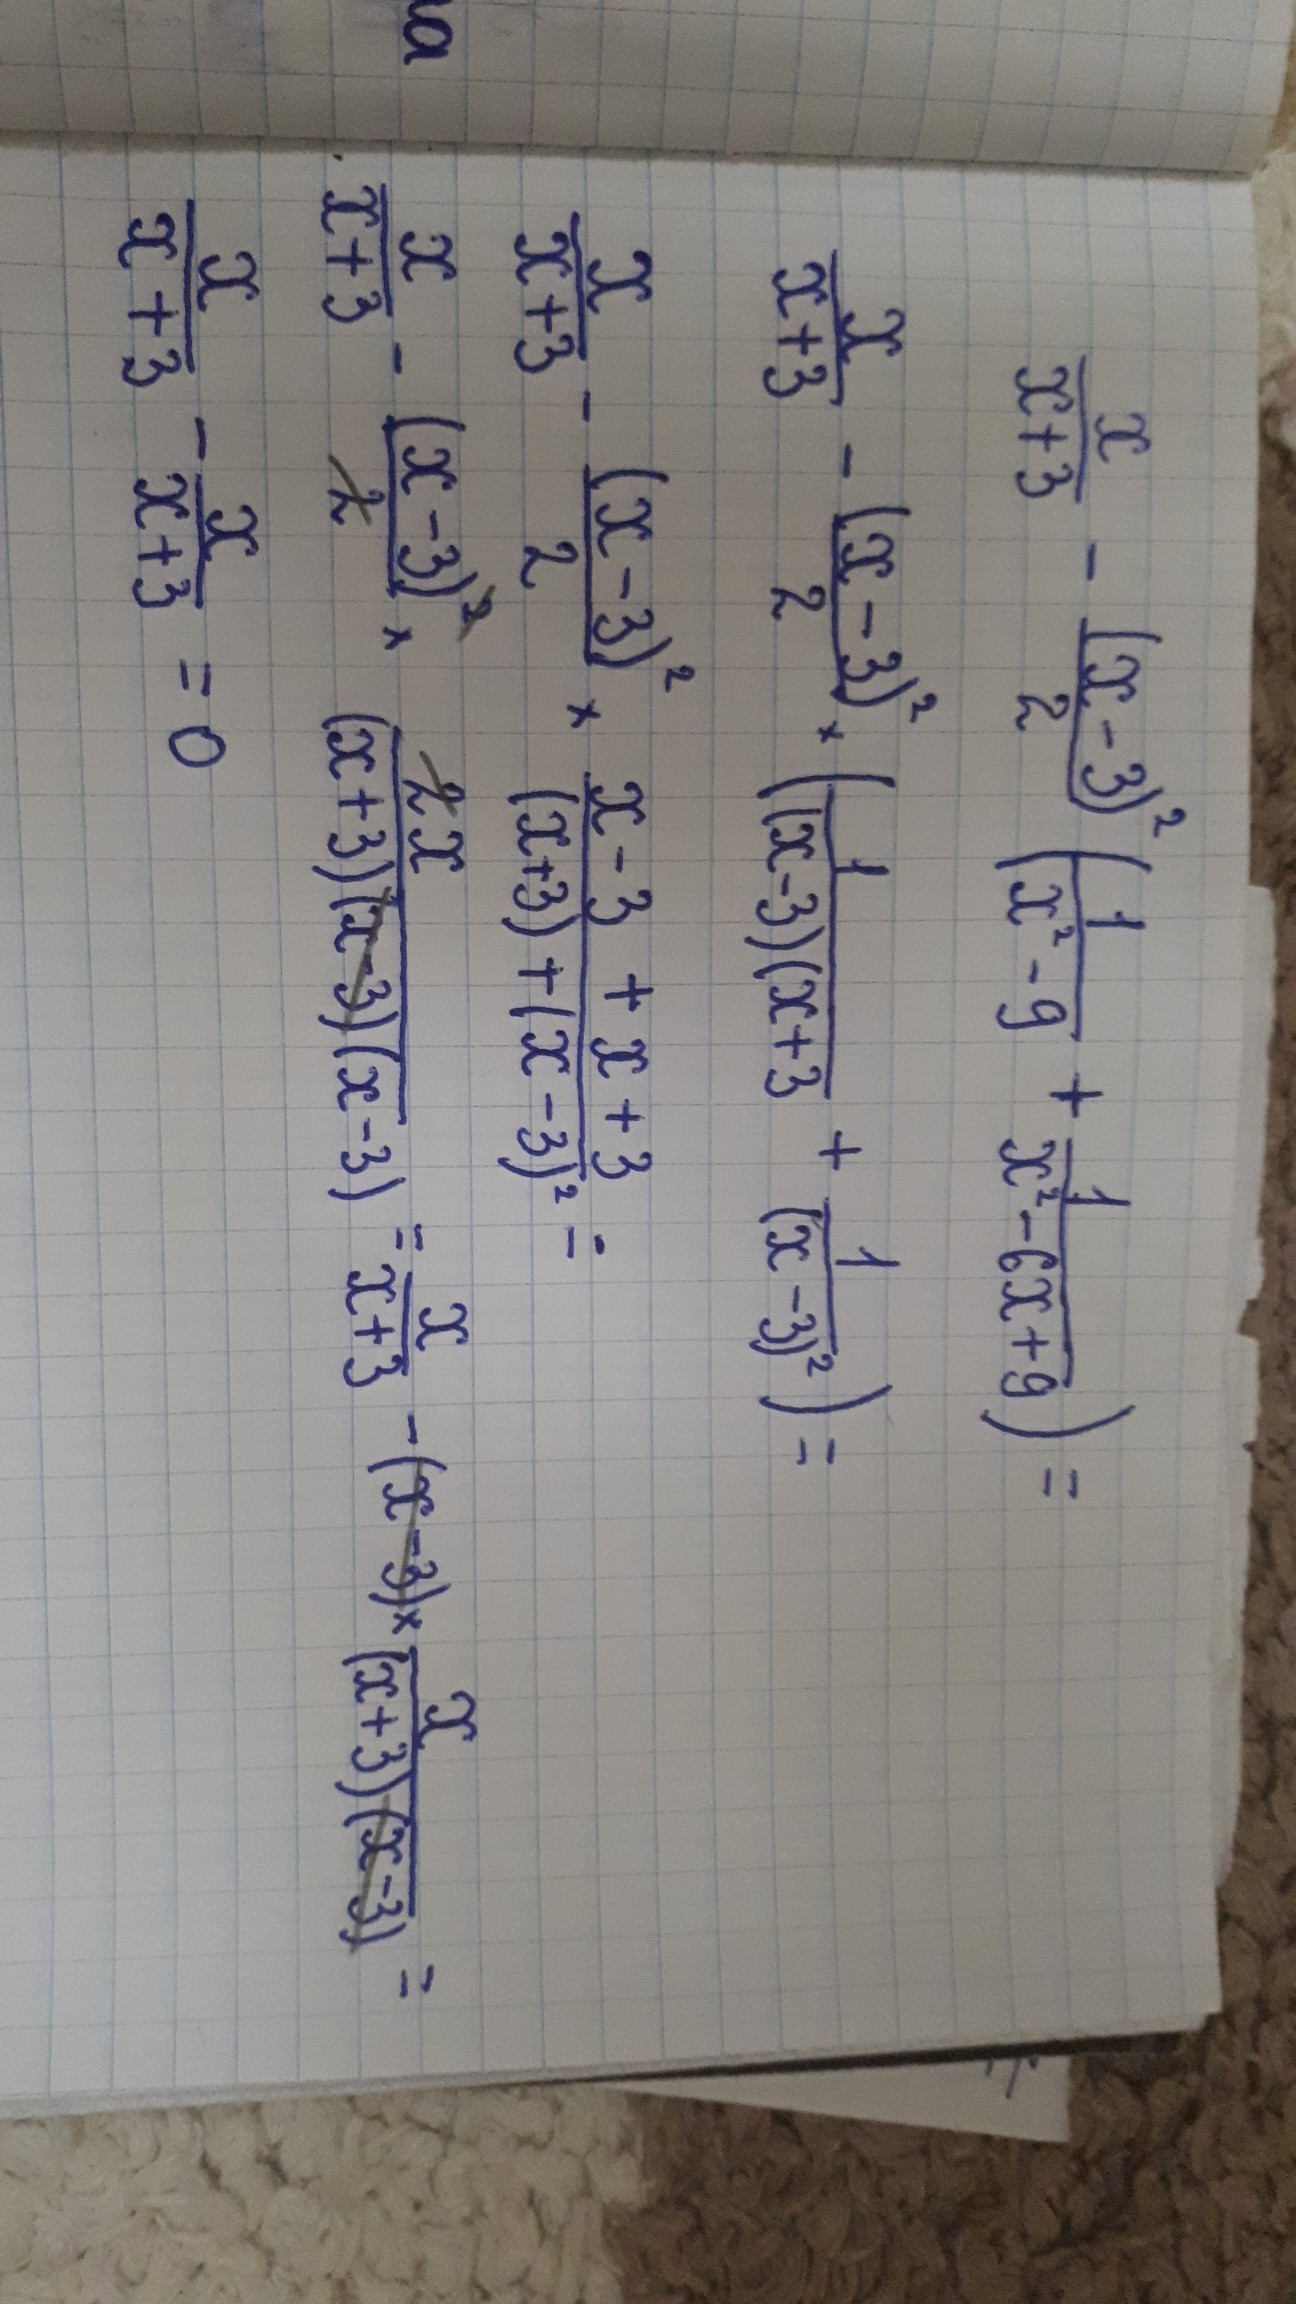 на
x/(x+3) - (x-3)²/2 (1/(x²-9) + 1/(x²-6x+9)) =
x/(x+3) - (x-3)²/2 × (1/((x-3)(x+3) + 1/(x-3)²) =
x/(x+3) - (x-3)²/2 × (x-3+x+3)/((x+3)+(x-3)²) =
x/(x+3) - (x-3)²/2 × 2x/((x+3)(x-3)(x-3)) = x/(x+3) - (x-3) × x/((x+3)(x-3)) =
x/(x+3) - x/(x+3) = 0